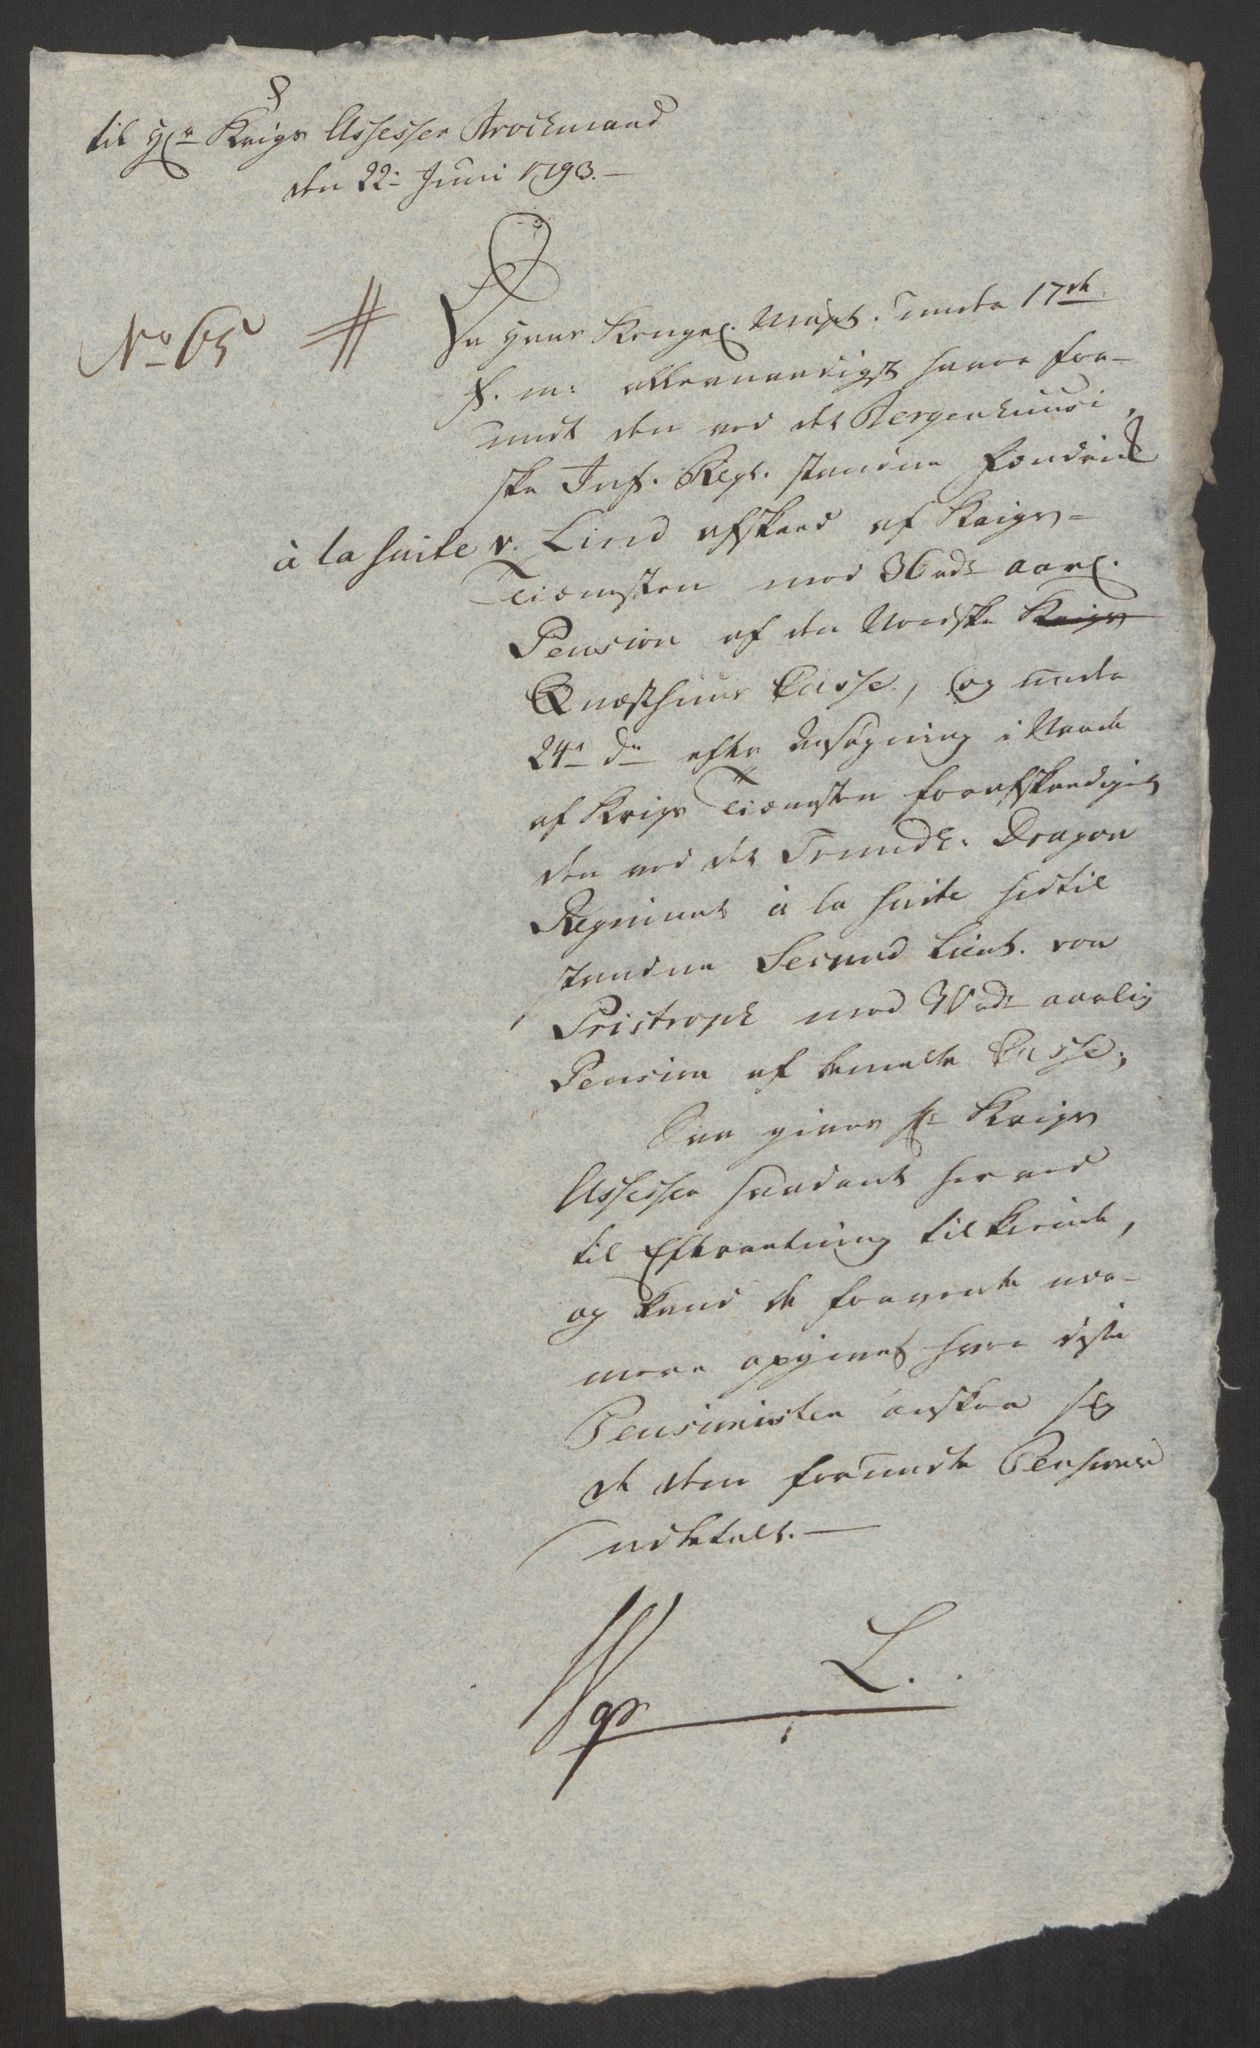 til Hr Krigs Assessor Brochmand
den 22de Juni 1793.—
No 65 #
Da Hans Kongel. Majst. under 17de
h. m. allernaadigst haver for-
undt den ved det Bergenhuusi
ske Inf. Regt. staaende Fændrik
à la suite v. Lind afskeed af Krigs-
Tienesten med 36 rdr aarl.
Pension af den Norske Krigs
Quæsthuus Casse, og under
24de Do efter Ansøgning i Naade
af Krigs Tienesten forafskeediget
den ved det Trundh. Dragon
Regiment à la suite hidtil
staaende Second Lieut. von
Pristroph med 30 rdr aarlig
Pension af bemelte Casse;
Saa gives Hr Krigs
Assessor saadant herved
til Efterretning tilkiende,
og kand de forvente nær-
mere opgivet hvor disse
Pensionister ønsker sig
de dem forundte Pensioner
udbetalt.—
L.